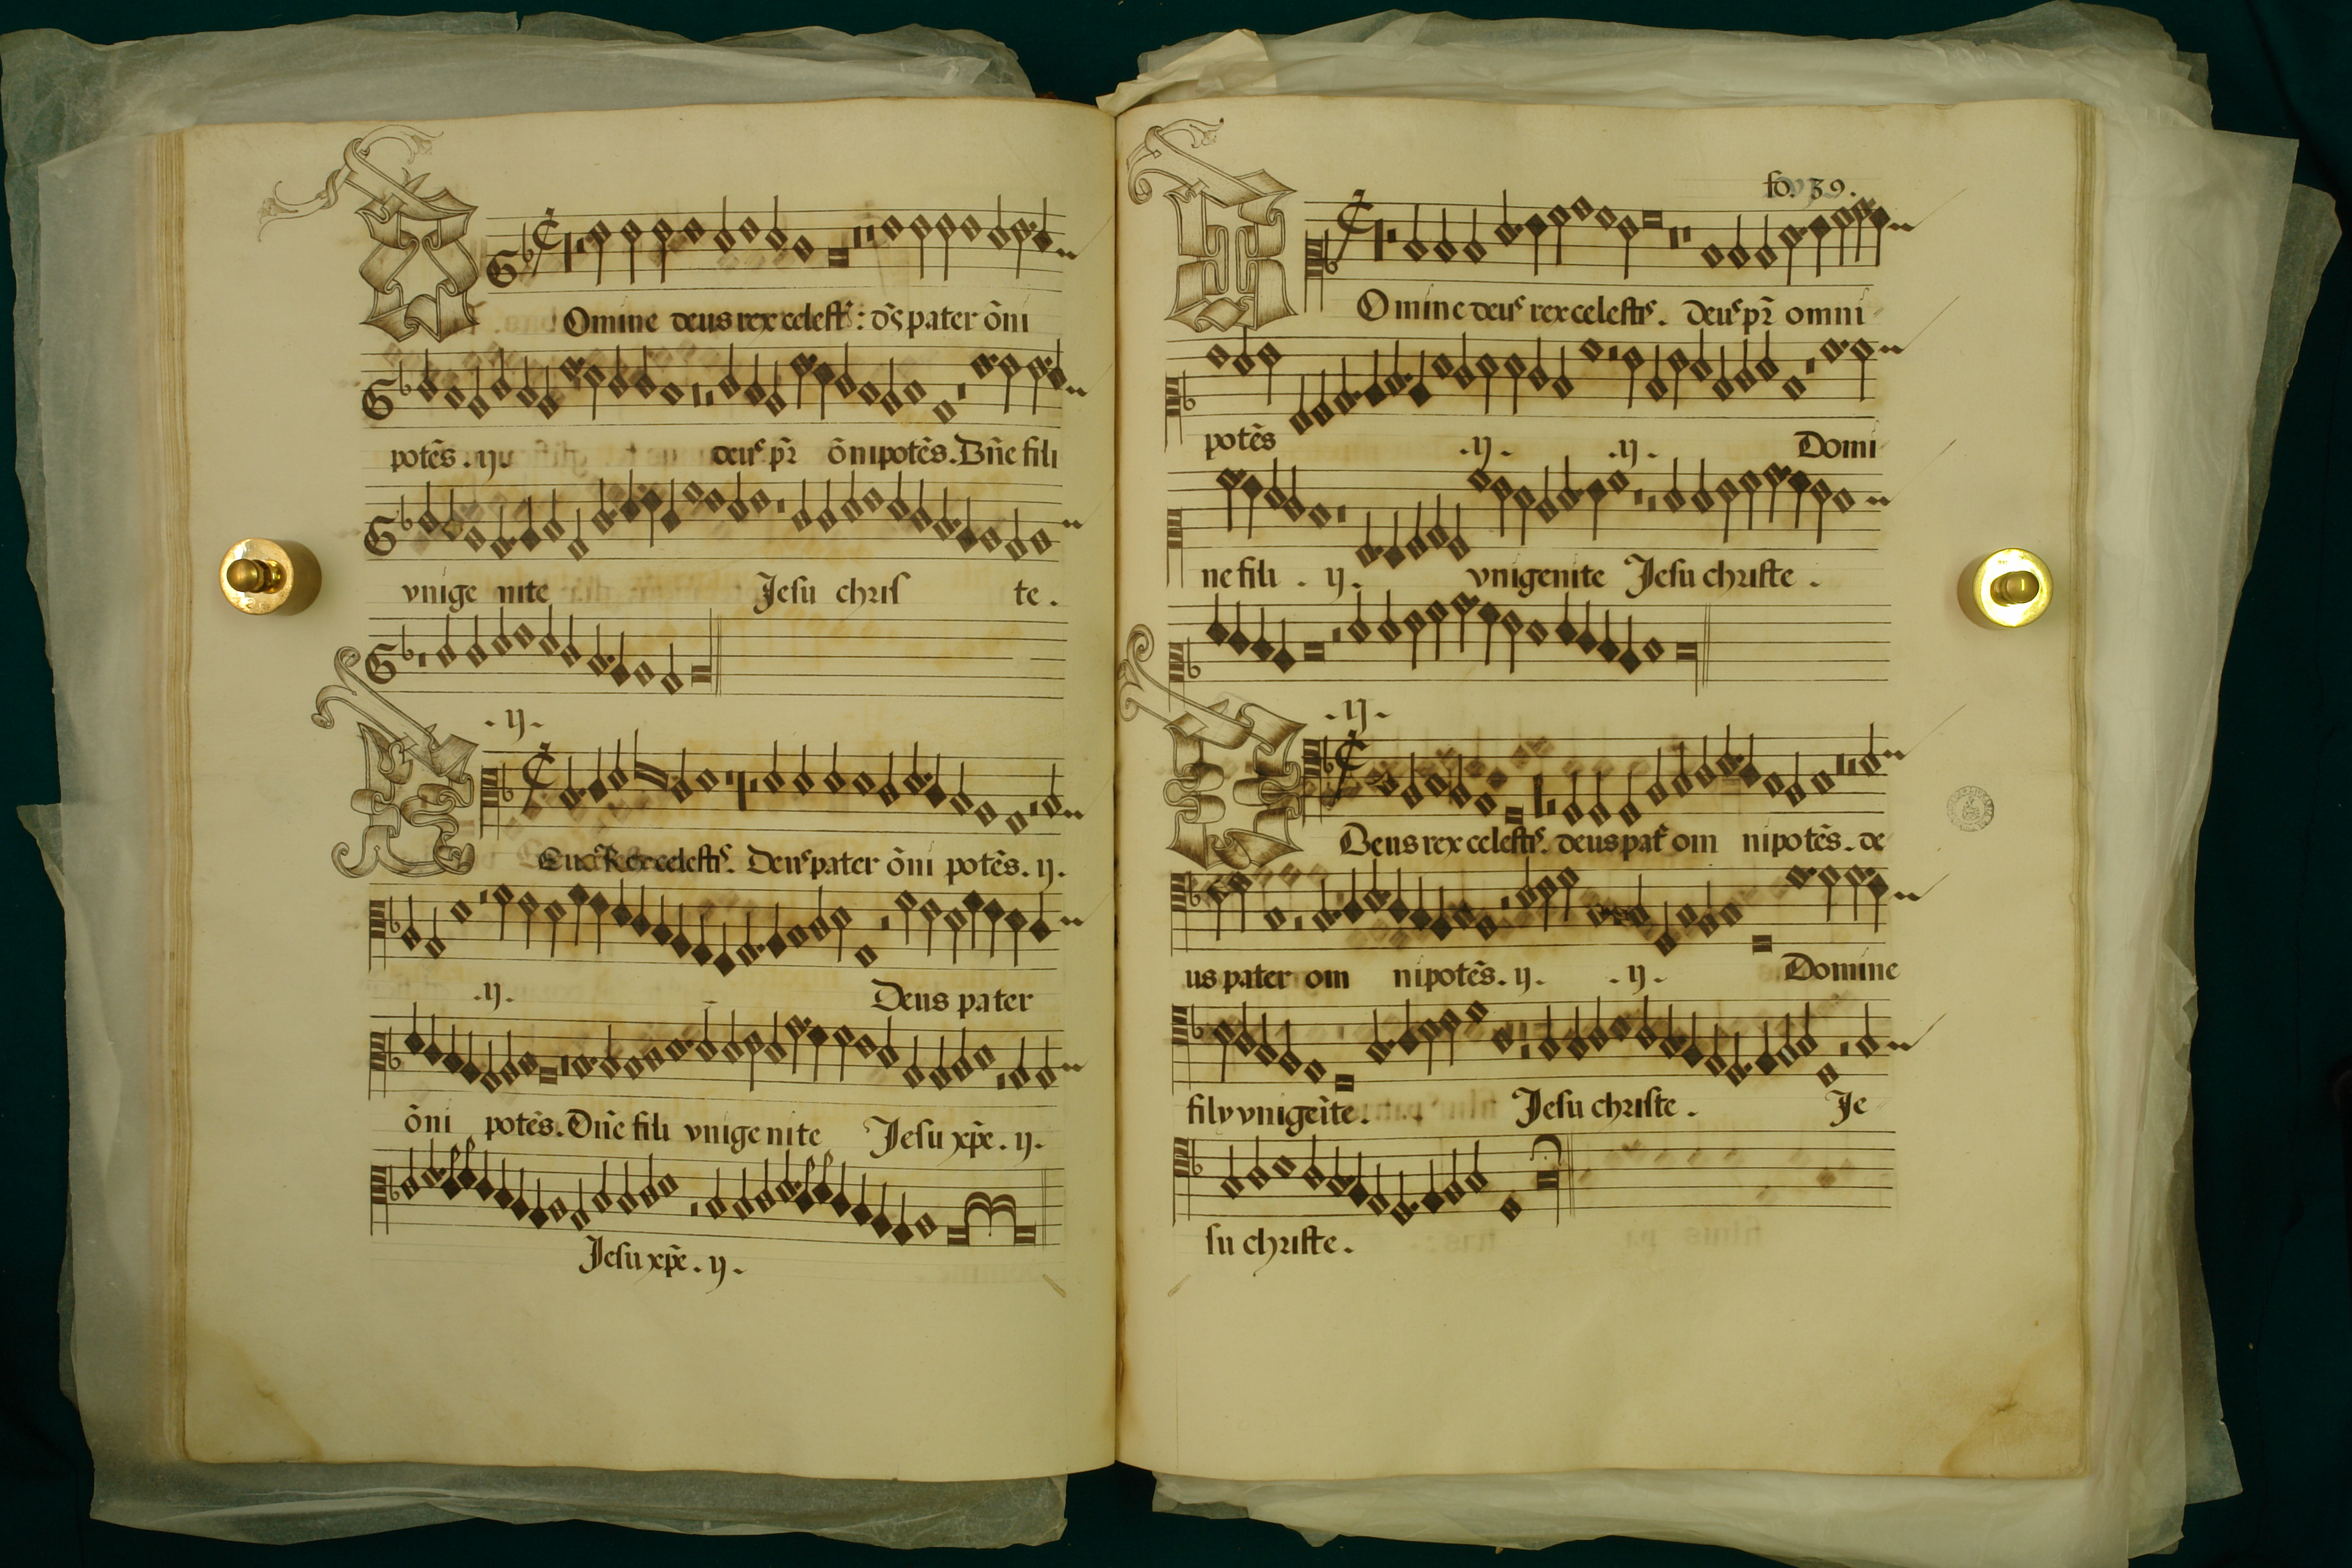 Omine deus rex celestꝭ : dꝰs pater õni
potẽs . ij . deuˢ pr̃ õnipotẽs . Dñe fili
vnige nite Jesu chris te .
. ij .
Euˢ Rex celestiˢ . Deuˢ pater õni potẽs . ij .
. ij . Deus pater
õni potẽs . Dñe fili vnige nite Jesu xp̃e . ij .
Jesu xp̃e . ij .
fo. 39.
Omine deuˢ rex celestiˢ . Deuˢ pr̃ omni
potẽs . ij . . ij . Domi
ne fili . ij . vnigenite Jesu christe .
. ij .
Deus rex celestiˢ . deus patˀ om nipotẽs . de
us pater om nipotẽs . ij . . ij . Domine
fily vnigeĩte . Jesu christe . Je
su christe .